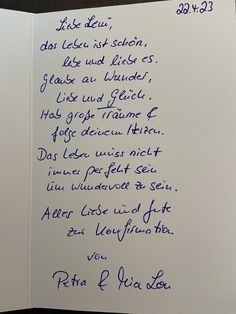 22.4.23
Liebe Leni,
das Leben ist schön,
lebe und liebe es.
Glaube an Wunder,
Liebe und Glück.
Hab große Träume &
folge deinem Herzen.
Das Leben muss nicht
immer perfekt sein
um wundervoll zu sein.
Alles Liebe und Gute
zur Konfirmation
von
Petra & Mia Lou